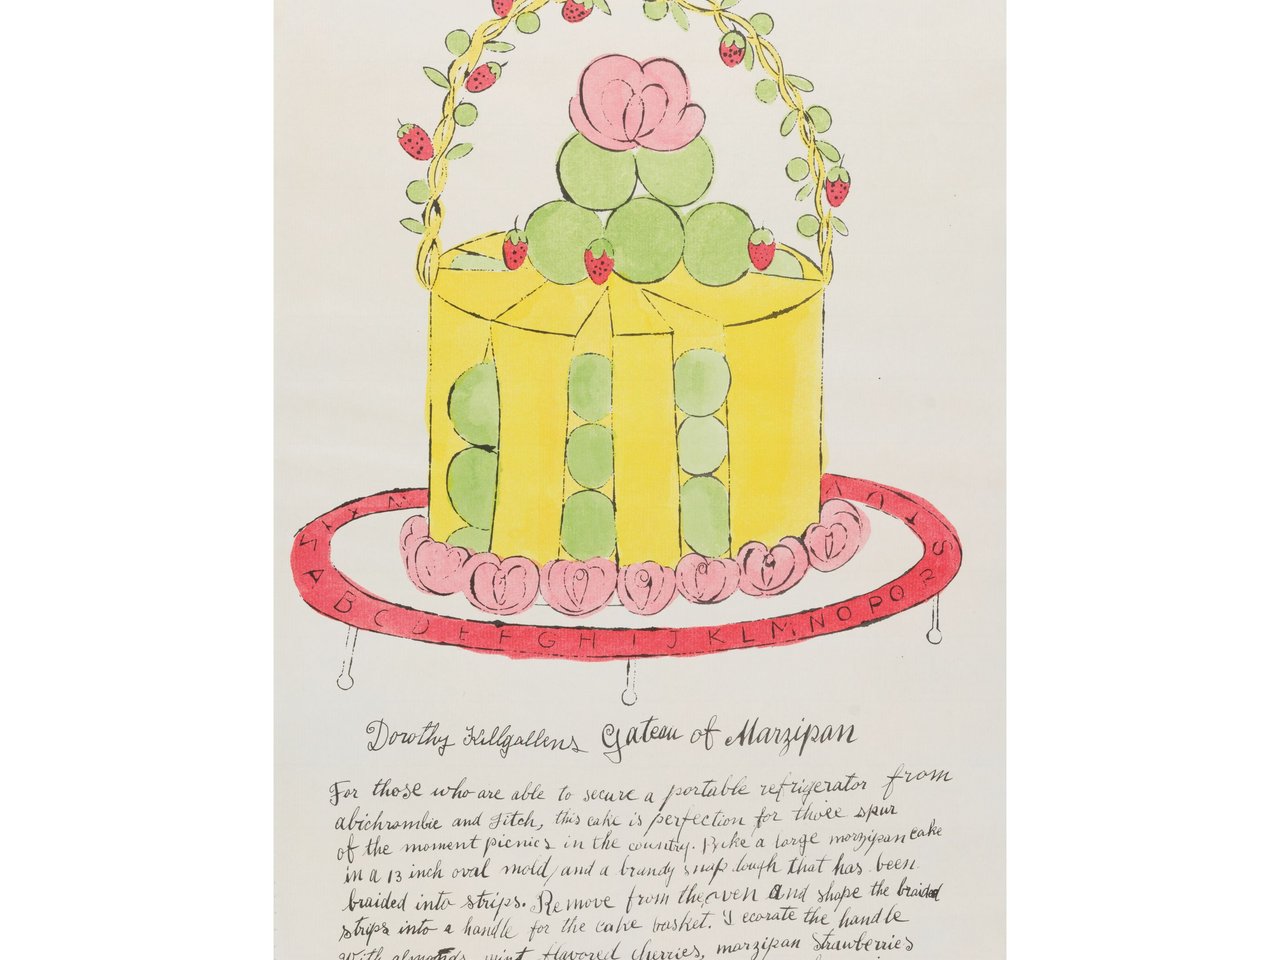 A B C D E F G H I J K L M N O P Q R S T U V W X Y Z
Dorothy Killgallens Gateau of Marzipan
For those who are able to secure a portable refrigerator from
abichrombie and Fitch, this cake is perfection for those spur
of the moment picnics in the country. Bake a large marzipan cake
in a 13 inch oval mold, and a brandy snap dough that has been
braided into strips. Remove from the oven and shape the braided
strips into a handle for the cake basket. Decorate the handle
with almonds, mint flavored cherries, marzipan strawberries